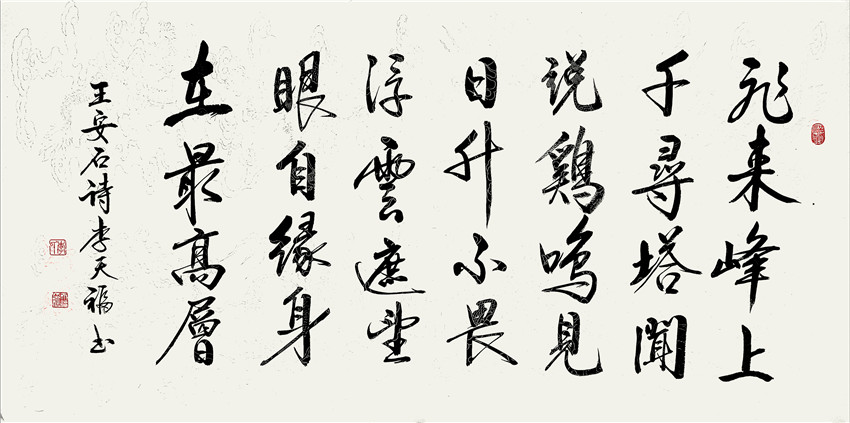 飛来峰上
千尋塔聞
説鷄鳴見
日升不畏
浮雲遮望
眼自緣身
在最高層
王安石诗李天福书